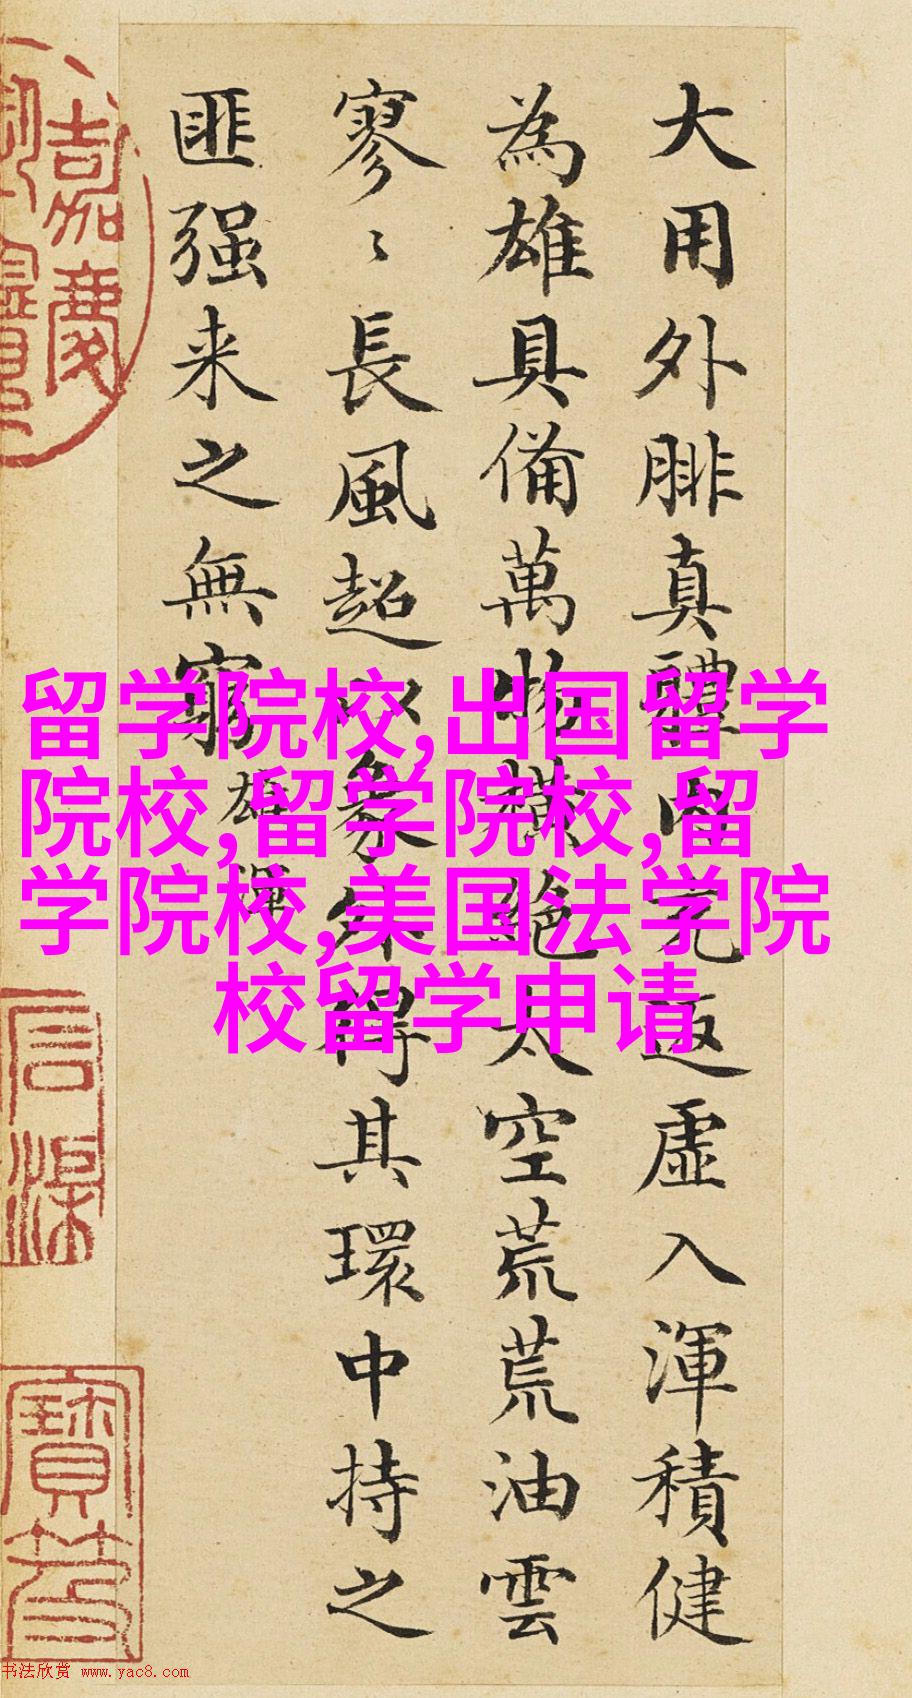 大用外腓真體内充返虛入渾積健
為雄具備萬物橫絕太空荒荒油雲
寥〻長風超以象外得其環中持之
匪强来之無窮
雄渾
留学院校,出国留学
院校,留学院校,留
学院校,美国法学院
校留学申请
嘉慶
寶
书法欣赏 www.yac8.com